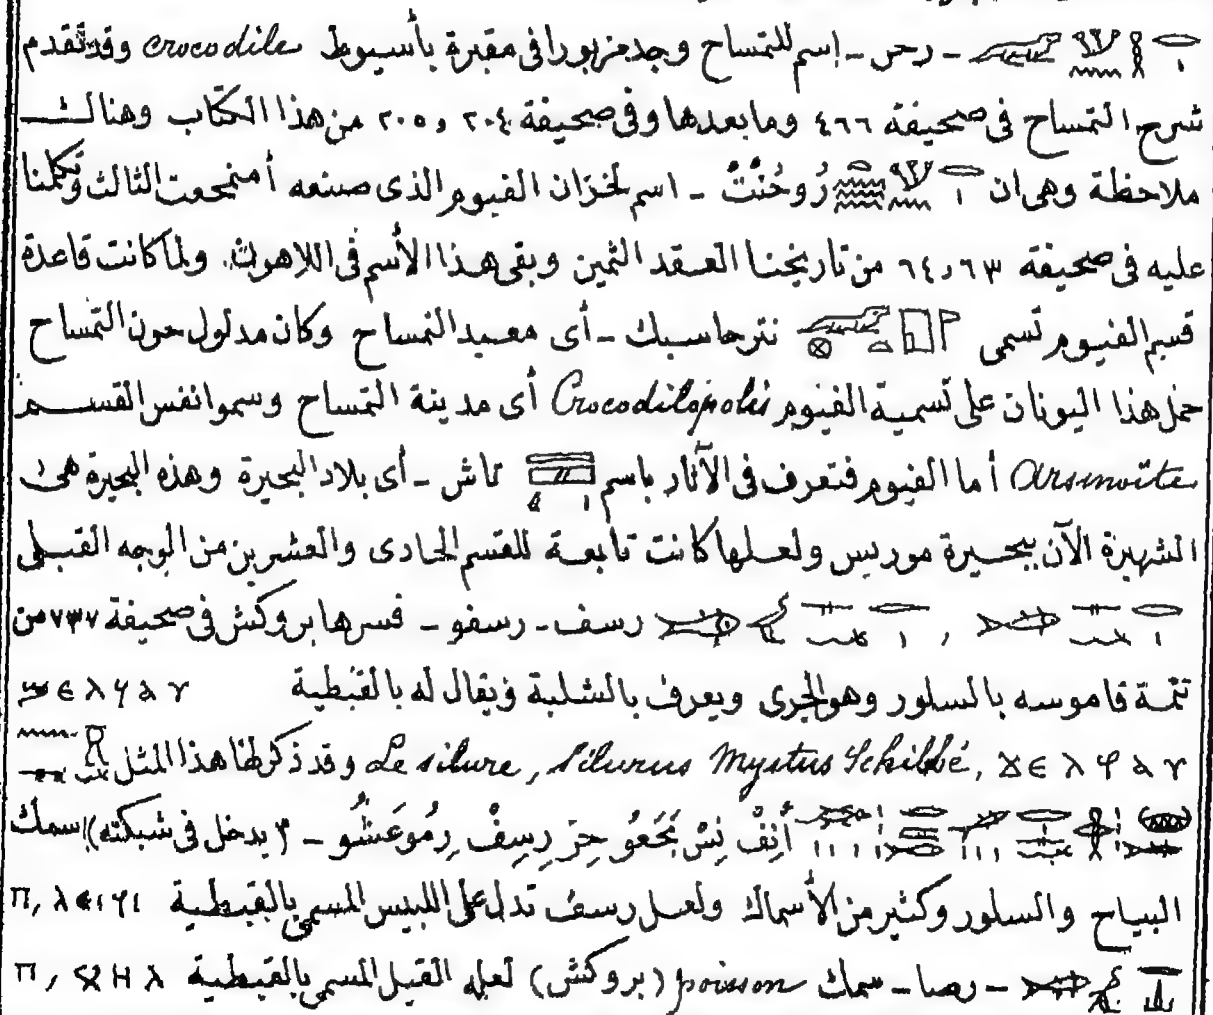 - رحر - إسم للتمساح وجد مزبورا فى مقبرة بأسيوط crocodile وقد تقدم
شرح التمساح فى صحيفة ٤٦٦ وما بعدها وفى صحيفة ٢٠٤ و٢٠٥ من هذا الكتاب وهنالك
ملاحظة وهى ان رُوحُنْتْ - اسم لخزان الفيوم الذى صنعه أمنمحعت الثالث وتكلمنا
عليه فى صحيفة ٦٣ و٦٤ من تاريخنا العقد الثمين وبقى هذا الأسم فى اللاهون. ولما كانت قاعدة
قسم الفيوم تسمى نترحاسبك - أى معبد التمساح وكان مدلول حون التمساح
حمل هذا اليونان على تسمية الفيوم Crocodilopolis أى مدينة التمساح وسموا نفس القسم
Arsinoïte أما الفيوم فتعرف فى الآثار باسم تاش - أى بلاد البحيرة وهذه البحيرة هى
الشهيرة الآن ببحيرة موريس ولعلها كانت تابعة للقسم الحادى والعشرين من الوجه القبلى
, رسف - رسفو - فسرها بروكش فى صحيفة ٧٣٧ من
تتمة قاموسه بالسلور وهو الجرى ويعرف بالشلبة ويقال له بالقبطية
Le silure, Silurus Mystus Schilbé, وقد ذكر لنا هذا المثل
أُنِفْ نِسْ بَحَعُو حِرَ رِسِفْ رِمُوعَشُو - ٣ يدخل فى شبكته) سمك
البياح والسلور وكثير من الأسماك ولعل رسف تدل على اللبيس المسمى بالقبطية
- رصا - سمك poisson (بروكش) لعله القيل المسمى بالقبطية